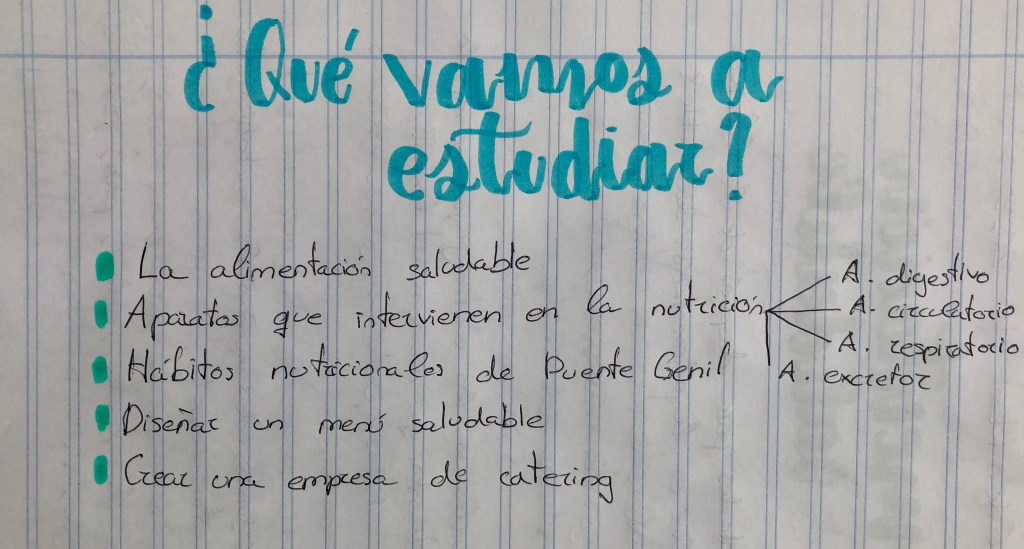 ¿Qué vamos a
estudiar?
La alimentación saludable
Aparatos que intervienen en la nutrición
A. digestivo
A. circulatorio
A. respiratorio
A. excretor
Hábitos nutricionales de Puente Genil
Diseñar un menú saludable
Crear una empresa de catering